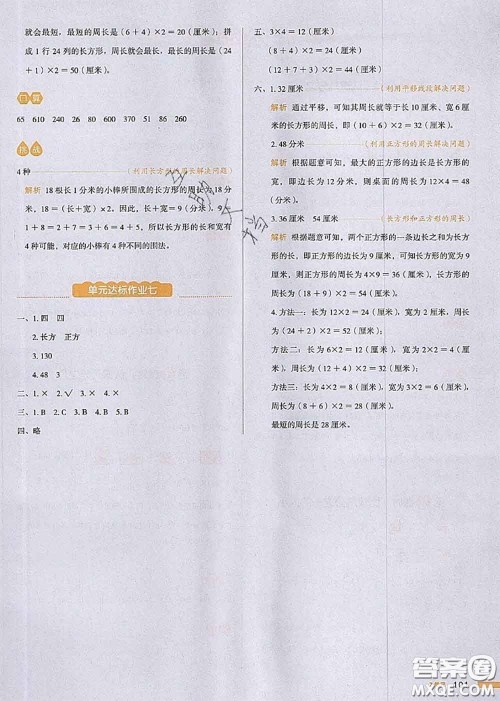 就会最短，最短的周长是（6＋4）×2＝20（厘米）；拼
成1行24列的长方形，周长就会最长，最长的周长是（24
＋1）×2＝50（厘米）。
口算
65 610 240 26 80 60 370 51 86 260
挑战
4种（利用长方形的周长解决问题）
解析 18根长1分米的小棒所围成的长方形周长为18分
米，因为周长＝（长＋宽）×2，所以长＋宽＝9分米，
1＋8＝2＋7＝3＋6＝4＋5，所以长方形的长和宽有
4种可能，对应的小棒有4种不同的围法。
单元达标作业七
一、1.四 四
2.长方 正方
3.130
4.48 3
二、1.× 2.√ 3.× 4.×
三、1.B 2.C 3.B 4.B
四、略
五、3×4＝12（厘米）
（8＋4）×2＝24（厘米）
（12＋7＋3）×2＝44（厘米）
六、1.32厘米（利用平移线段解决问题）
解析 通过平移，可知其周长就等于长10厘米，宽6厘
米的长方形的周长，即为（10＋6）×2＝32（厘米）。
2.48分米（利用正方形的周长解决问题）
解析 根据题意可知，最大的正方形的边长是长方形的
宽，即边长为12分米，则桌面的周长为12×4＝48
（分米）。
3.36厘米 54厘米（长方形和正方形的周长）
解析 根据题意可知，两个正方形的一条边长之和为长方
形的长，正方形的边长为长方形的宽，即长方形的宽为9
厘米，则正方形的周长为9×4＝36（厘米），长方形的
周长为（9＋9＋9）×2＝54（厘米）。
4.方法一：长为4×6＝24（厘米），宽为2厘米，周长为
（24＋2）×2＝52（厘米）；
方法二：长为6×2＝12（厘米），宽为4厘米，周长为
（12＋4）×2＝32（厘米）；
方法三：长为4×2＝8（厘米），宽为2×3＝6（厘米），
周长为（8＋6）×2＝28（厘米）。
最短的周长是28厘米。
101
答案圈
MXQE.COM